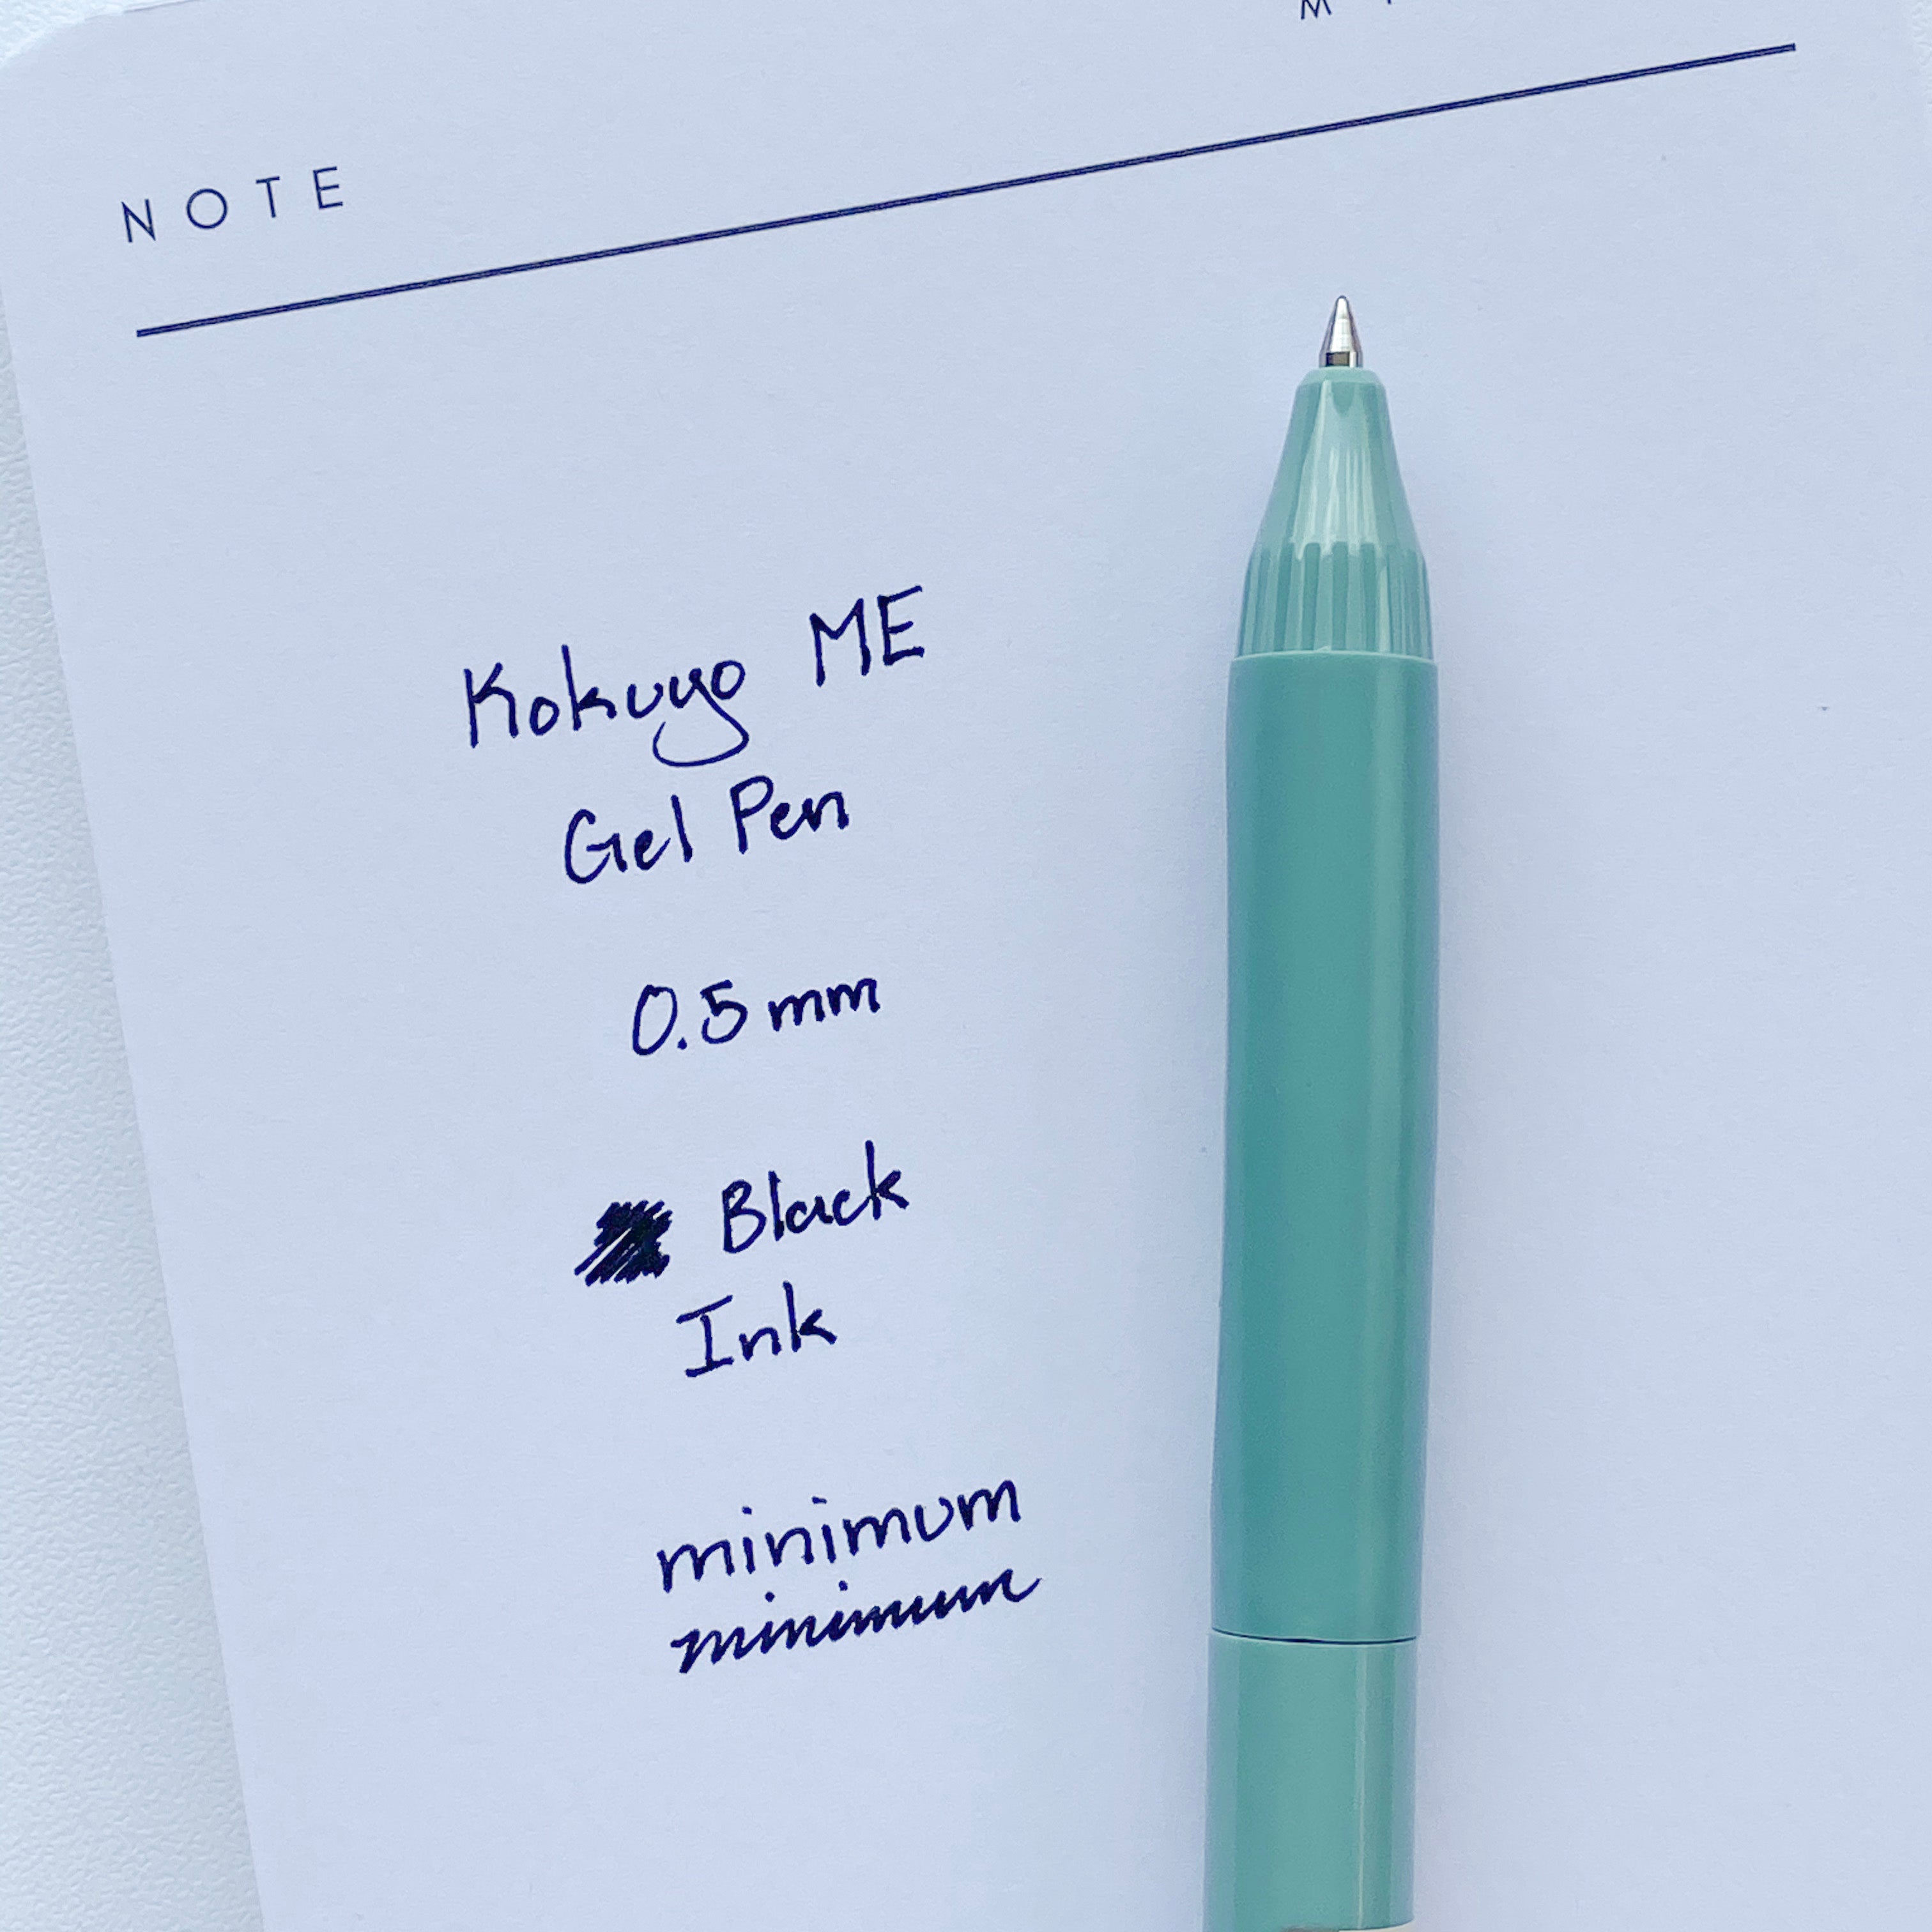 NOTE
Kokuyo ME
Gel Pen
0.5mm
Black
Ink
minimum
minimum